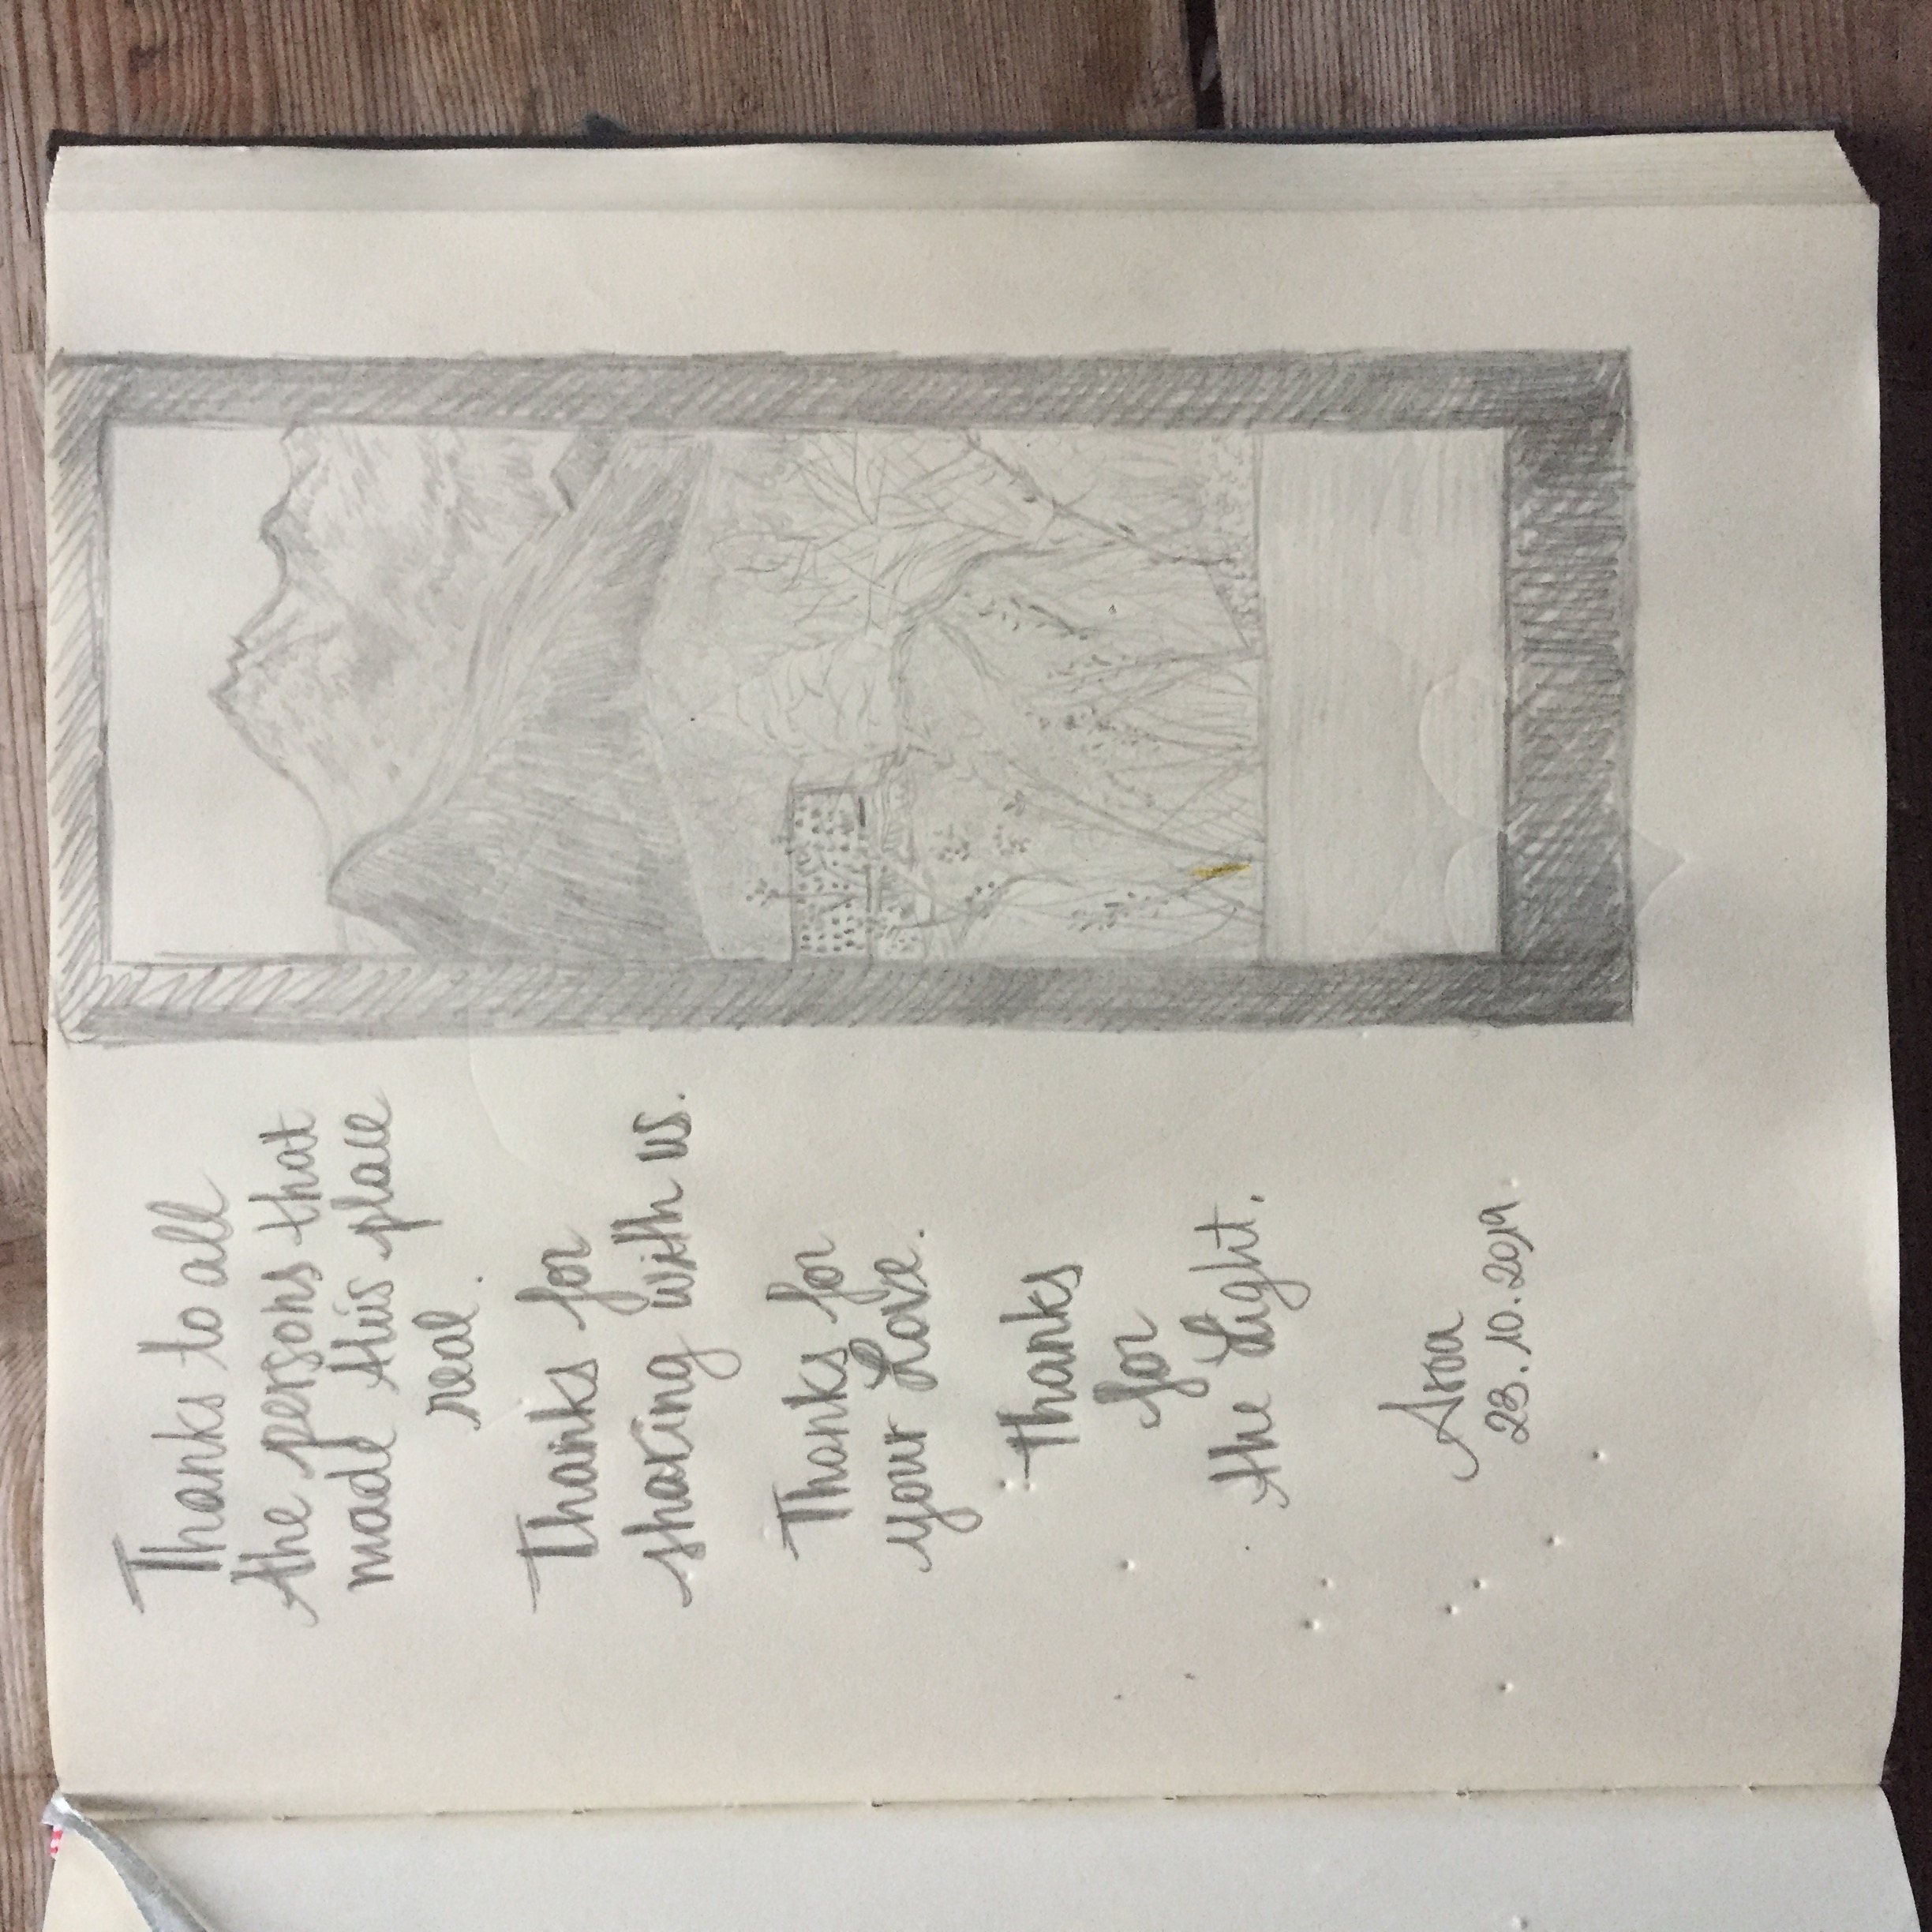 Thanks to all
the persons that
made this place
real.
Thanks for
sharing with us.
Thanks for
your Love.
Thanks
for
the Light.
23.10.2019.